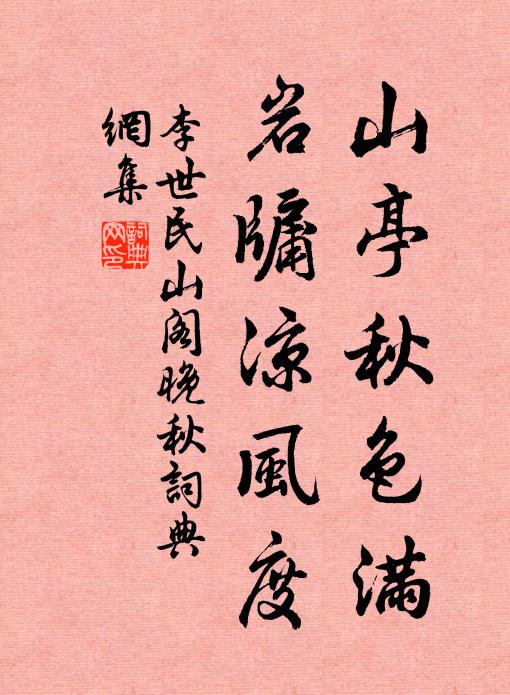 山亭秋色滿
岩牖凉風度
李世民山阁晚秋詞典
網集
詞典網印